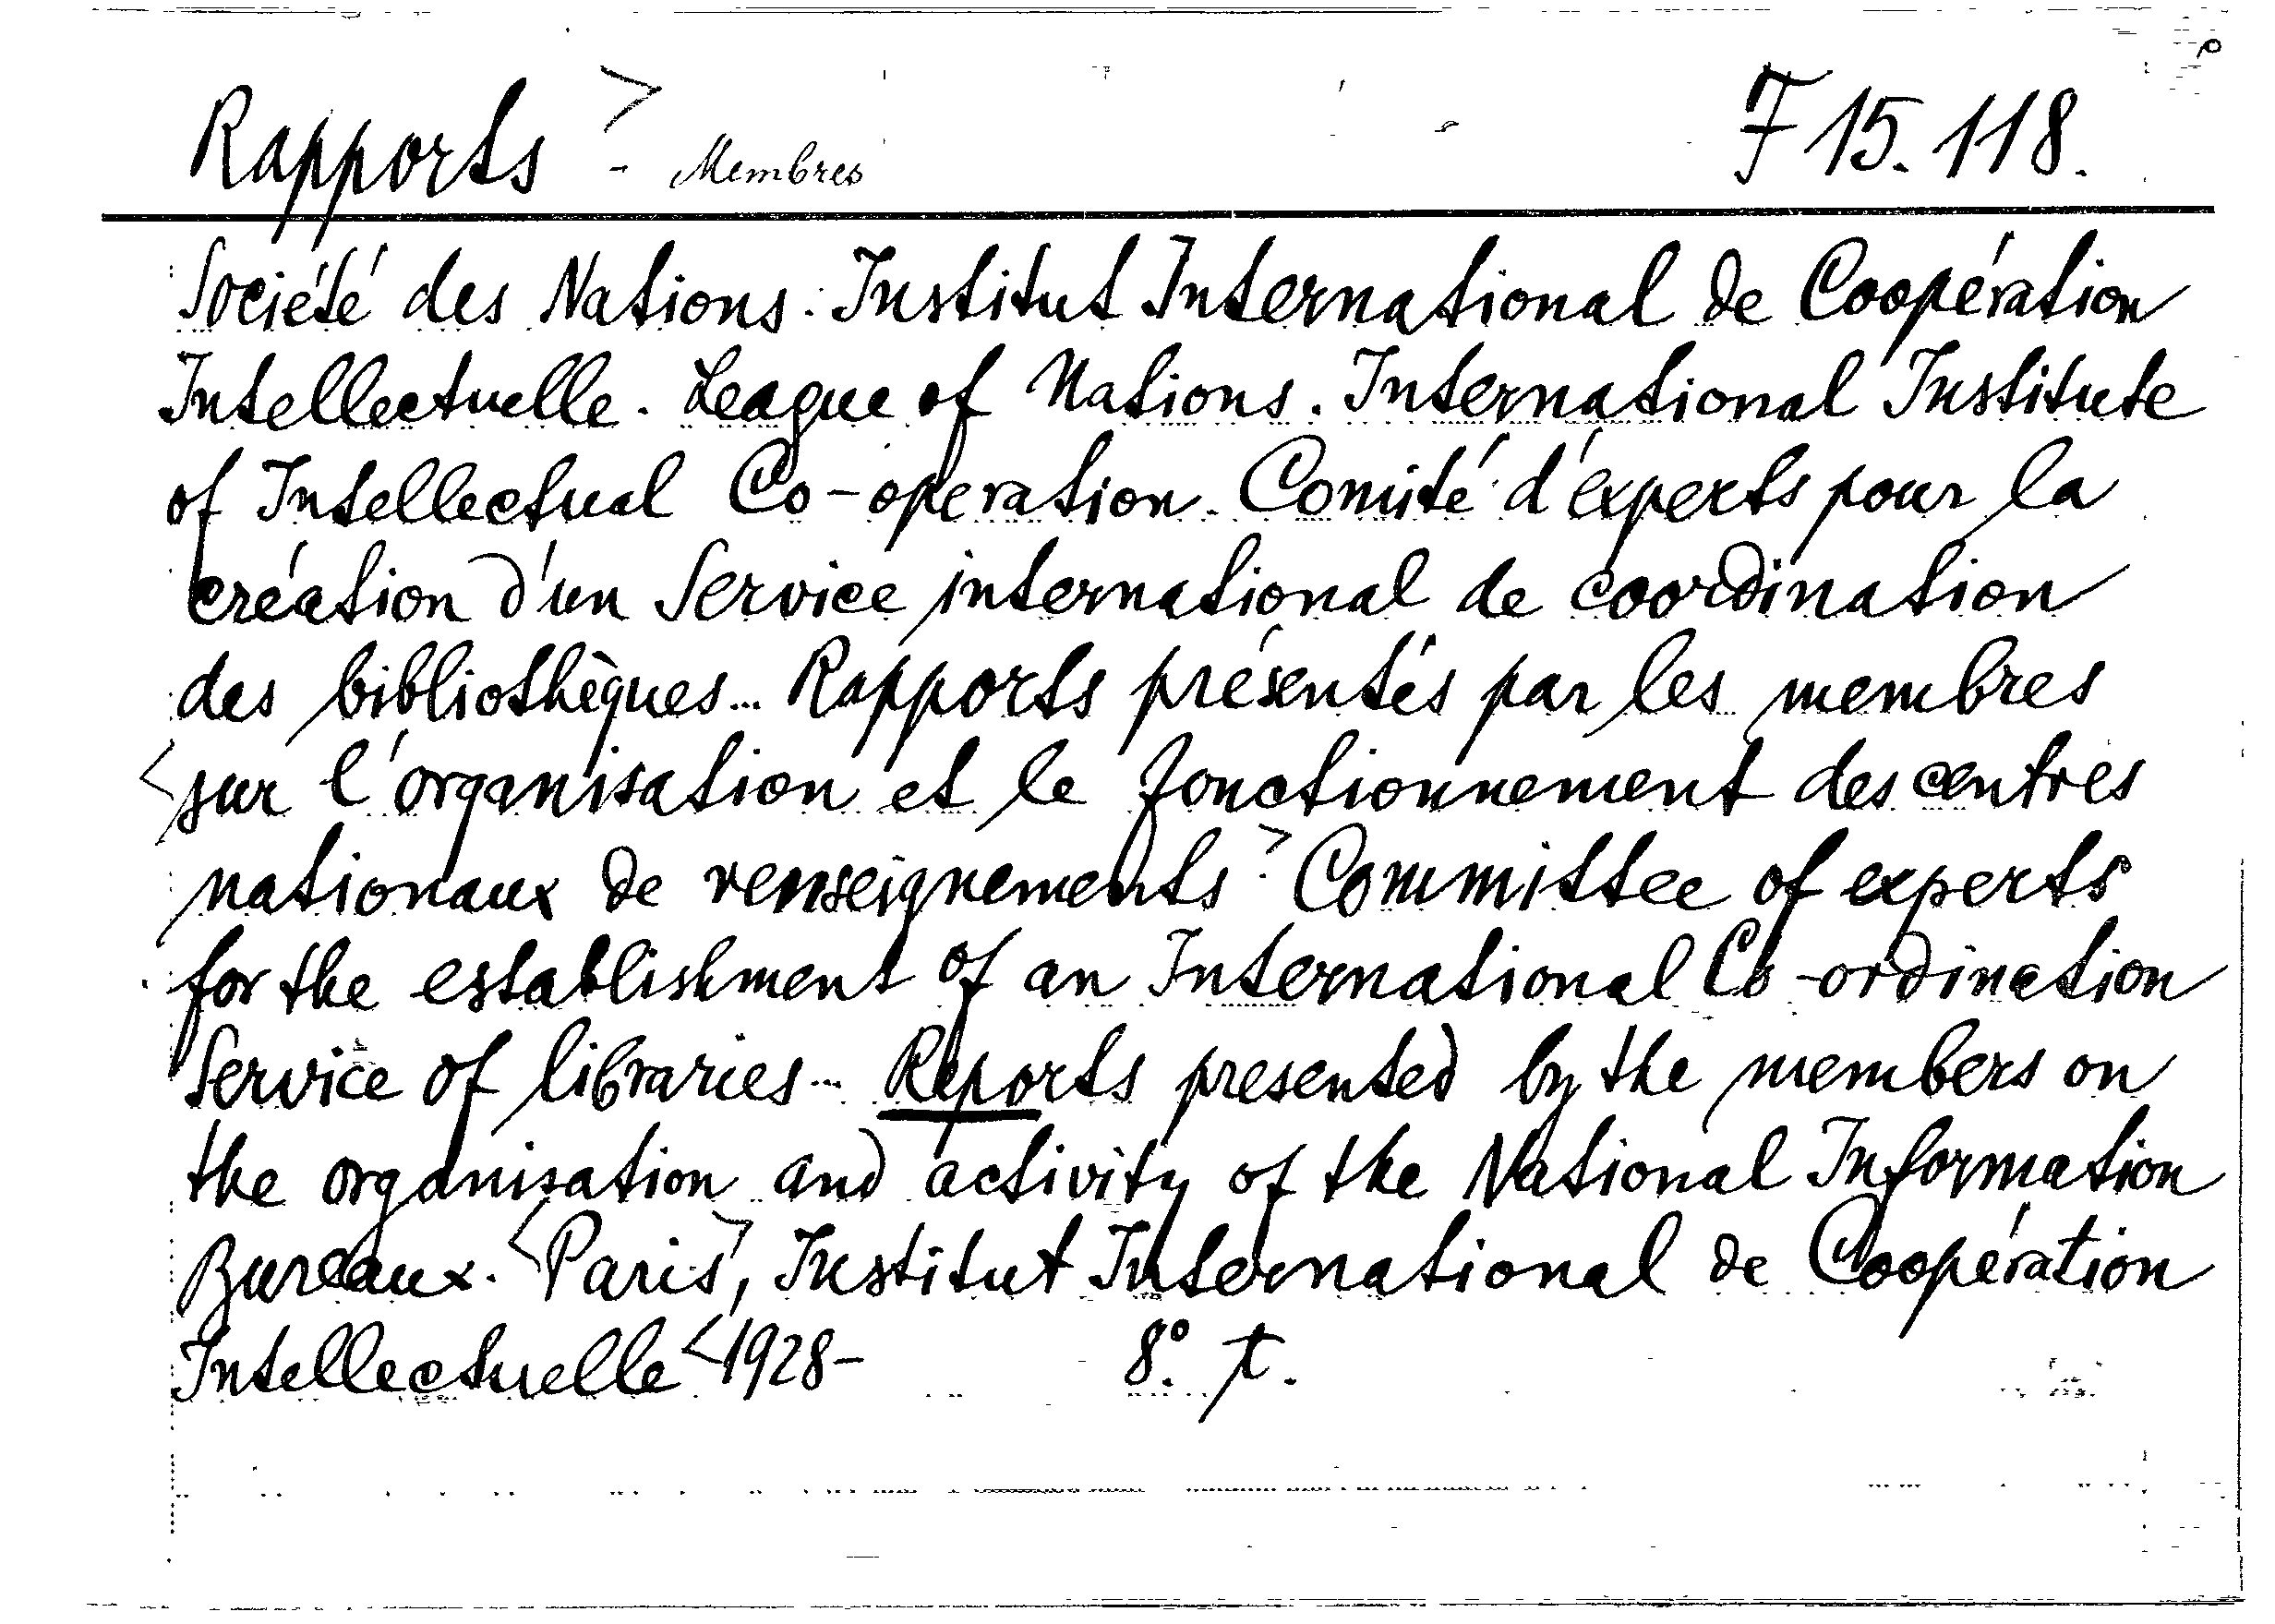 Rapports > - Membres F 15.118.
Société des Nations. Institut International de Coopération
Intellectuelle. League of Nations. International Institute
of Intellectual Co-operation. Comité d'experts pour la
création d'un Service international de coordination
des bibliothèques... Rapports présentés par les membres
<sur l'organisation et le fonctionnement des centres
nationaux de renseignements>. Committee of experts
for the establishment of an International Co-ordination
Service of libraries... Reports presented by the members on
the organisation and activity of the National Information
Bureaux. <Paris>, Institut International de Coopération
Intellectuelle <1928- 8°. t.